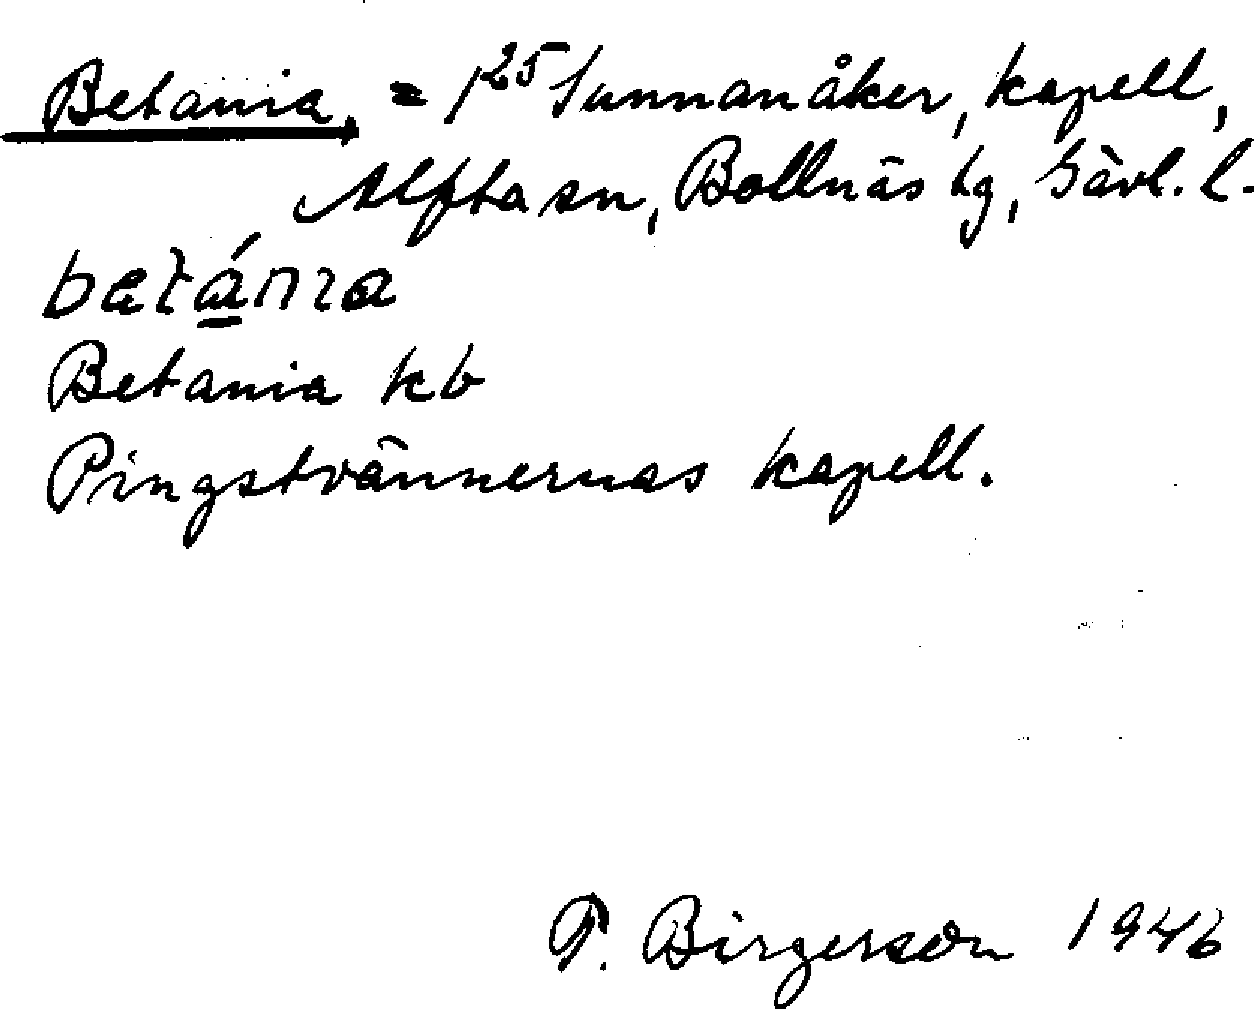 Betania. = 1²⁵ Sunnanåker, kapell,
Alfta sn, Bollnäs tg, Gävl. l.
betánıa
Betania kb
Pingstvännernas kapell.
T. Birgerson 1946